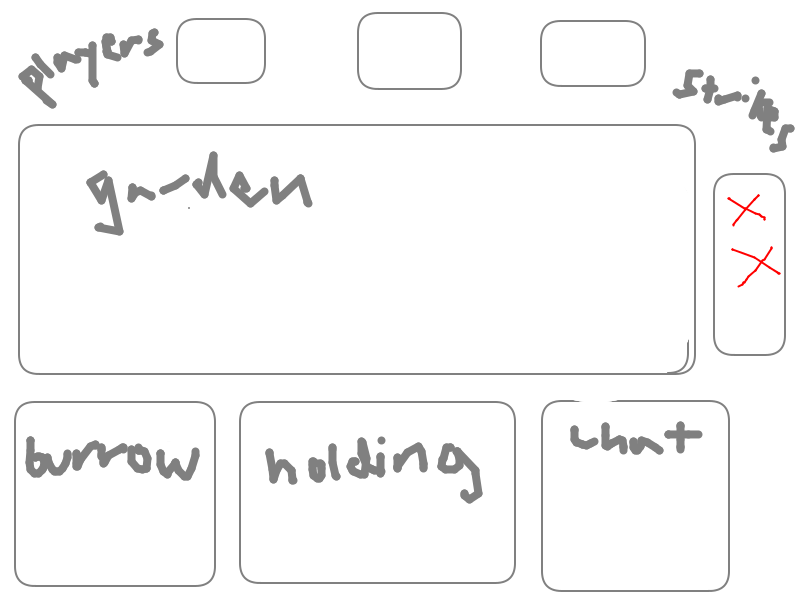 players
strikes
garden
burrow
holding
chat